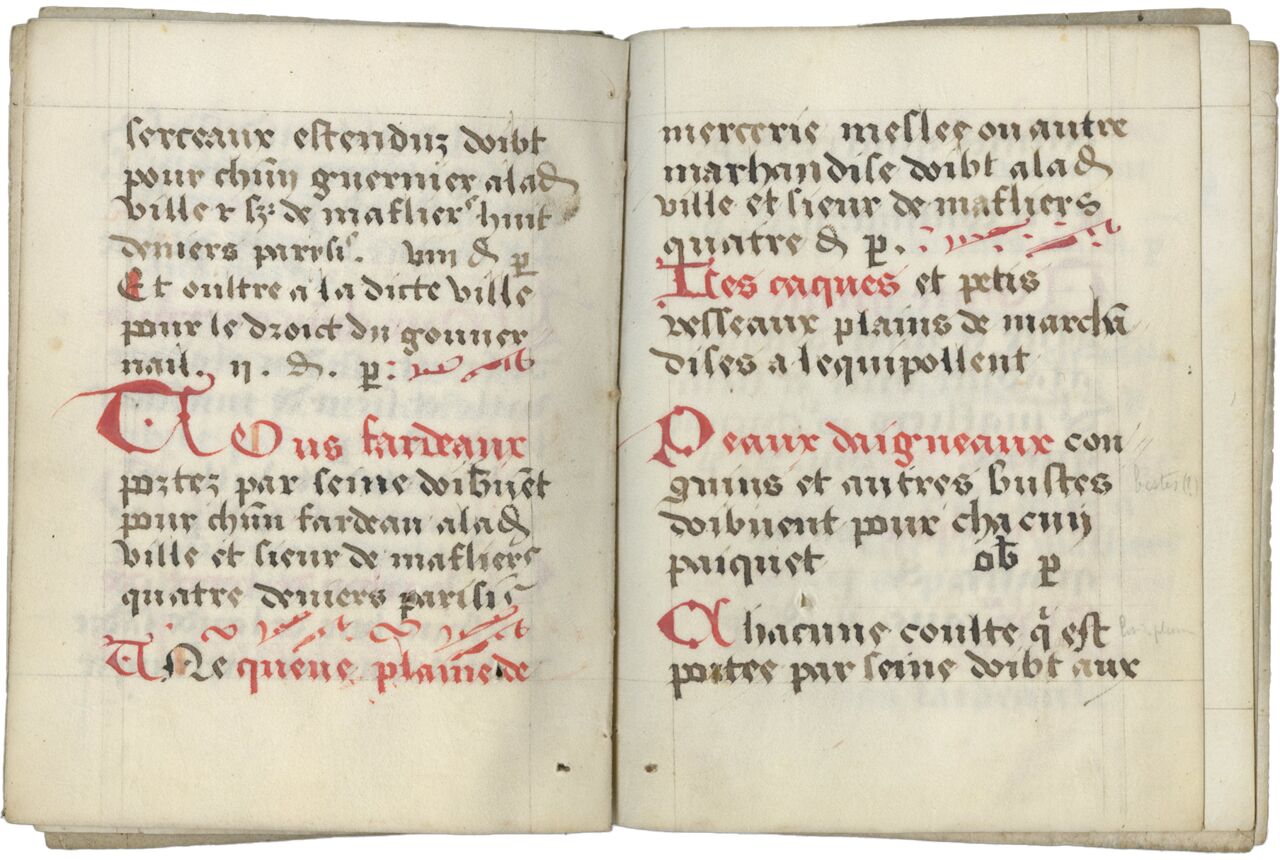 serceaux estenduz doibt
pour chūn guernier a lad
ville et sr de mafliers huit
deniers parisis. viii d p
Et oultre a la dicte ville
pour le droict du gouver
nail. ii. d. p.
TOus fardeaux
portez par seine doibvent
pour chūn fardeau a lad
ville et sieur de mafliers
quatre deniers parisis
UNe queue plaine de
mercerie meslee ou autre
marhandise doibt a lad
ville et sieur de mafliers
quatre d p.
Les caques et petis
vesseaux plains de marchā
dises a lequipollent
Peaux daigneaux con
guins et autres bustes
doibuent pour chacun
paiquet ob p
Chacune coulte q̄ est
portee par seine doibt aux